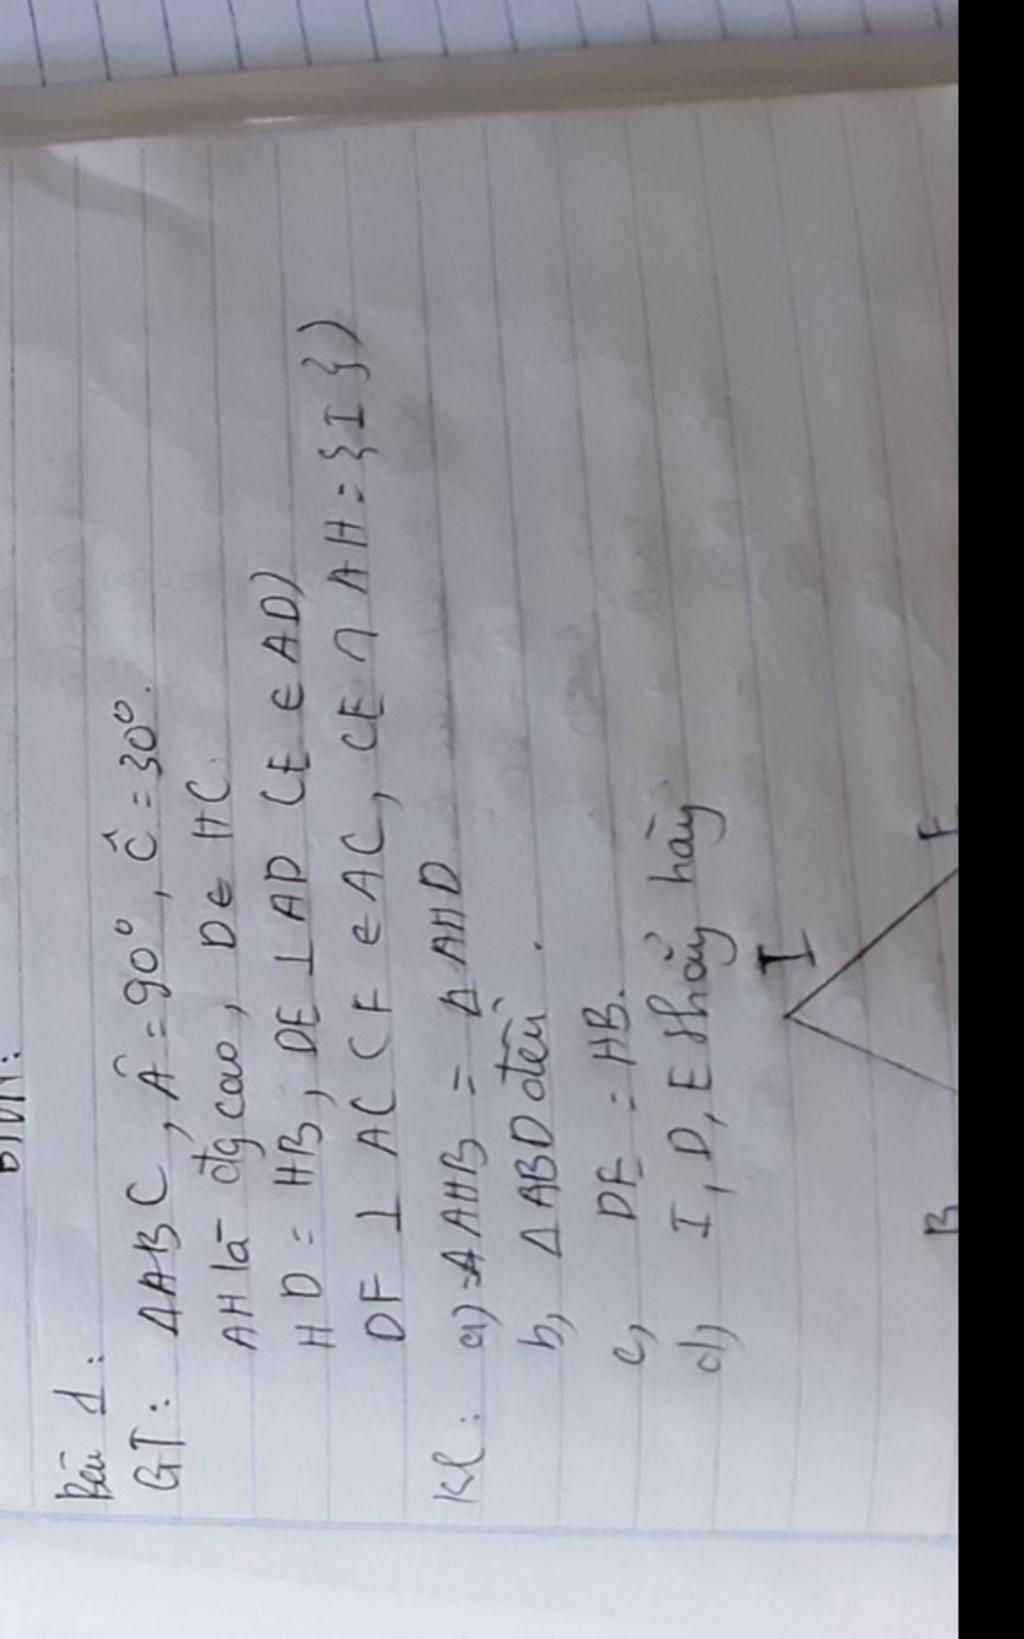 Bài 1:
GT: ΔABC, Â = 90°, Ĉ = 30°.
AH là đg cao, D ∈ HC.
HD = HB, DE ⊥ AD (E ∈ AD)
DF ⊥ AC (F ∈ AC, CE ∩ AH = {I})
KL: a) ΔAHB = ΔAHD
b, ΔABD đều.
c, DF = HB.
d, I, D, F thẳng hàng
I
F
B